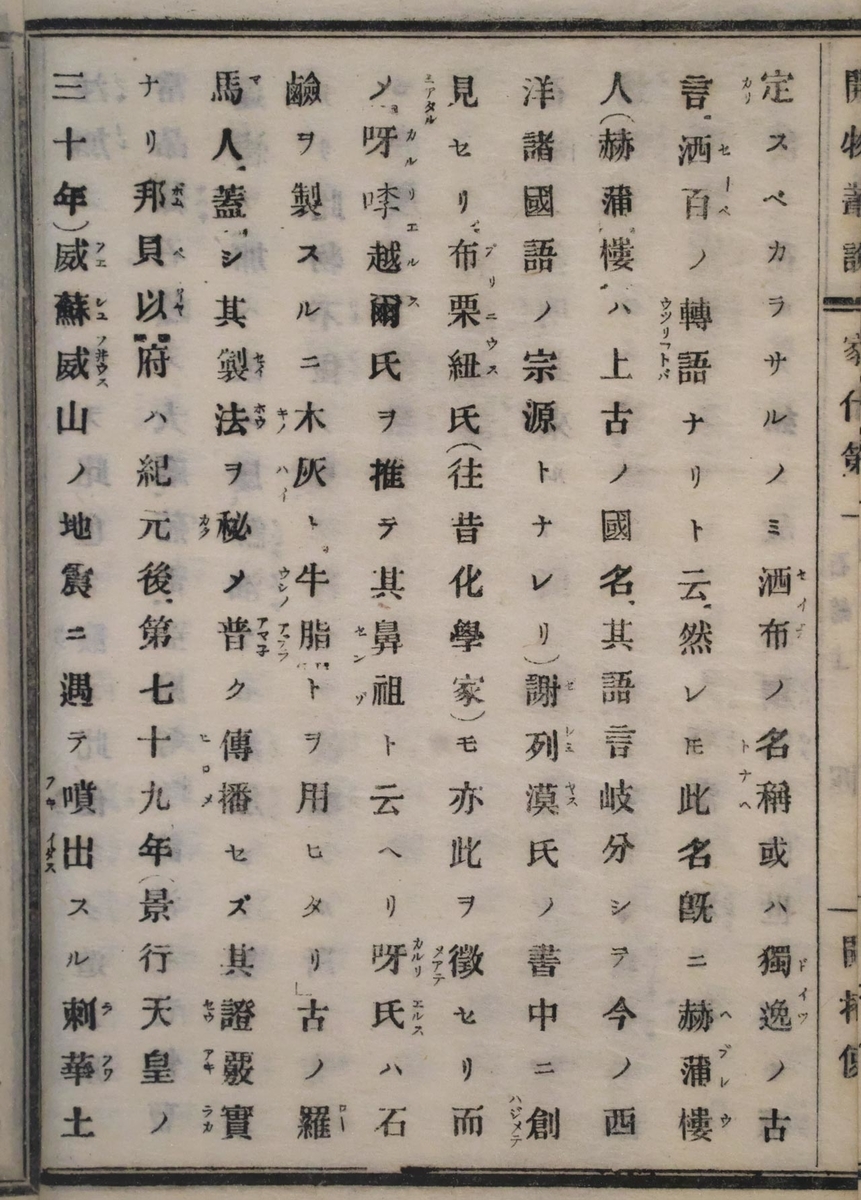 定スベカラサルノミ洒布ノ名稱或ハ獨逸ノ古
言洒百ノ轉語ナリト云然レ𪜈此名既ニ赫蒲樓
人(赫蒲樓ハ上古ノ國名其語言岐分シテ今ノ西
洋諸國語ノ宗源トナレリ)謝列漠氏ノ書中ニ創
見セリ布栗紐氏(往昔化學家)モ亦此ヲ徵セリ而
メ呀哮越爾氏ヲ推テ其鼻祖ト云ヘリ呀氏ハ石
鹼ヲ製スルニ木灰ト牛脂トヲ用ヒタリ」古ノ羅
馬人蓋シ其製法ヲ秘メ普ク傳播セズ其證覈實
ナリ邦貝以府ハ紀元後第七十九年(景行天皇ノ
三十年)威蘇威山ノ地震ニ遇テ噴出スル剌華土